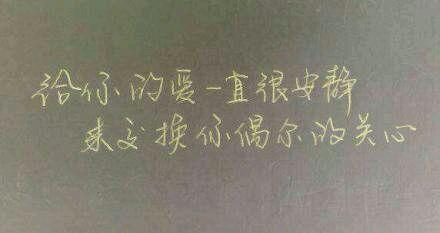 给你的爱一直很安静
来交换你偶尔的关心